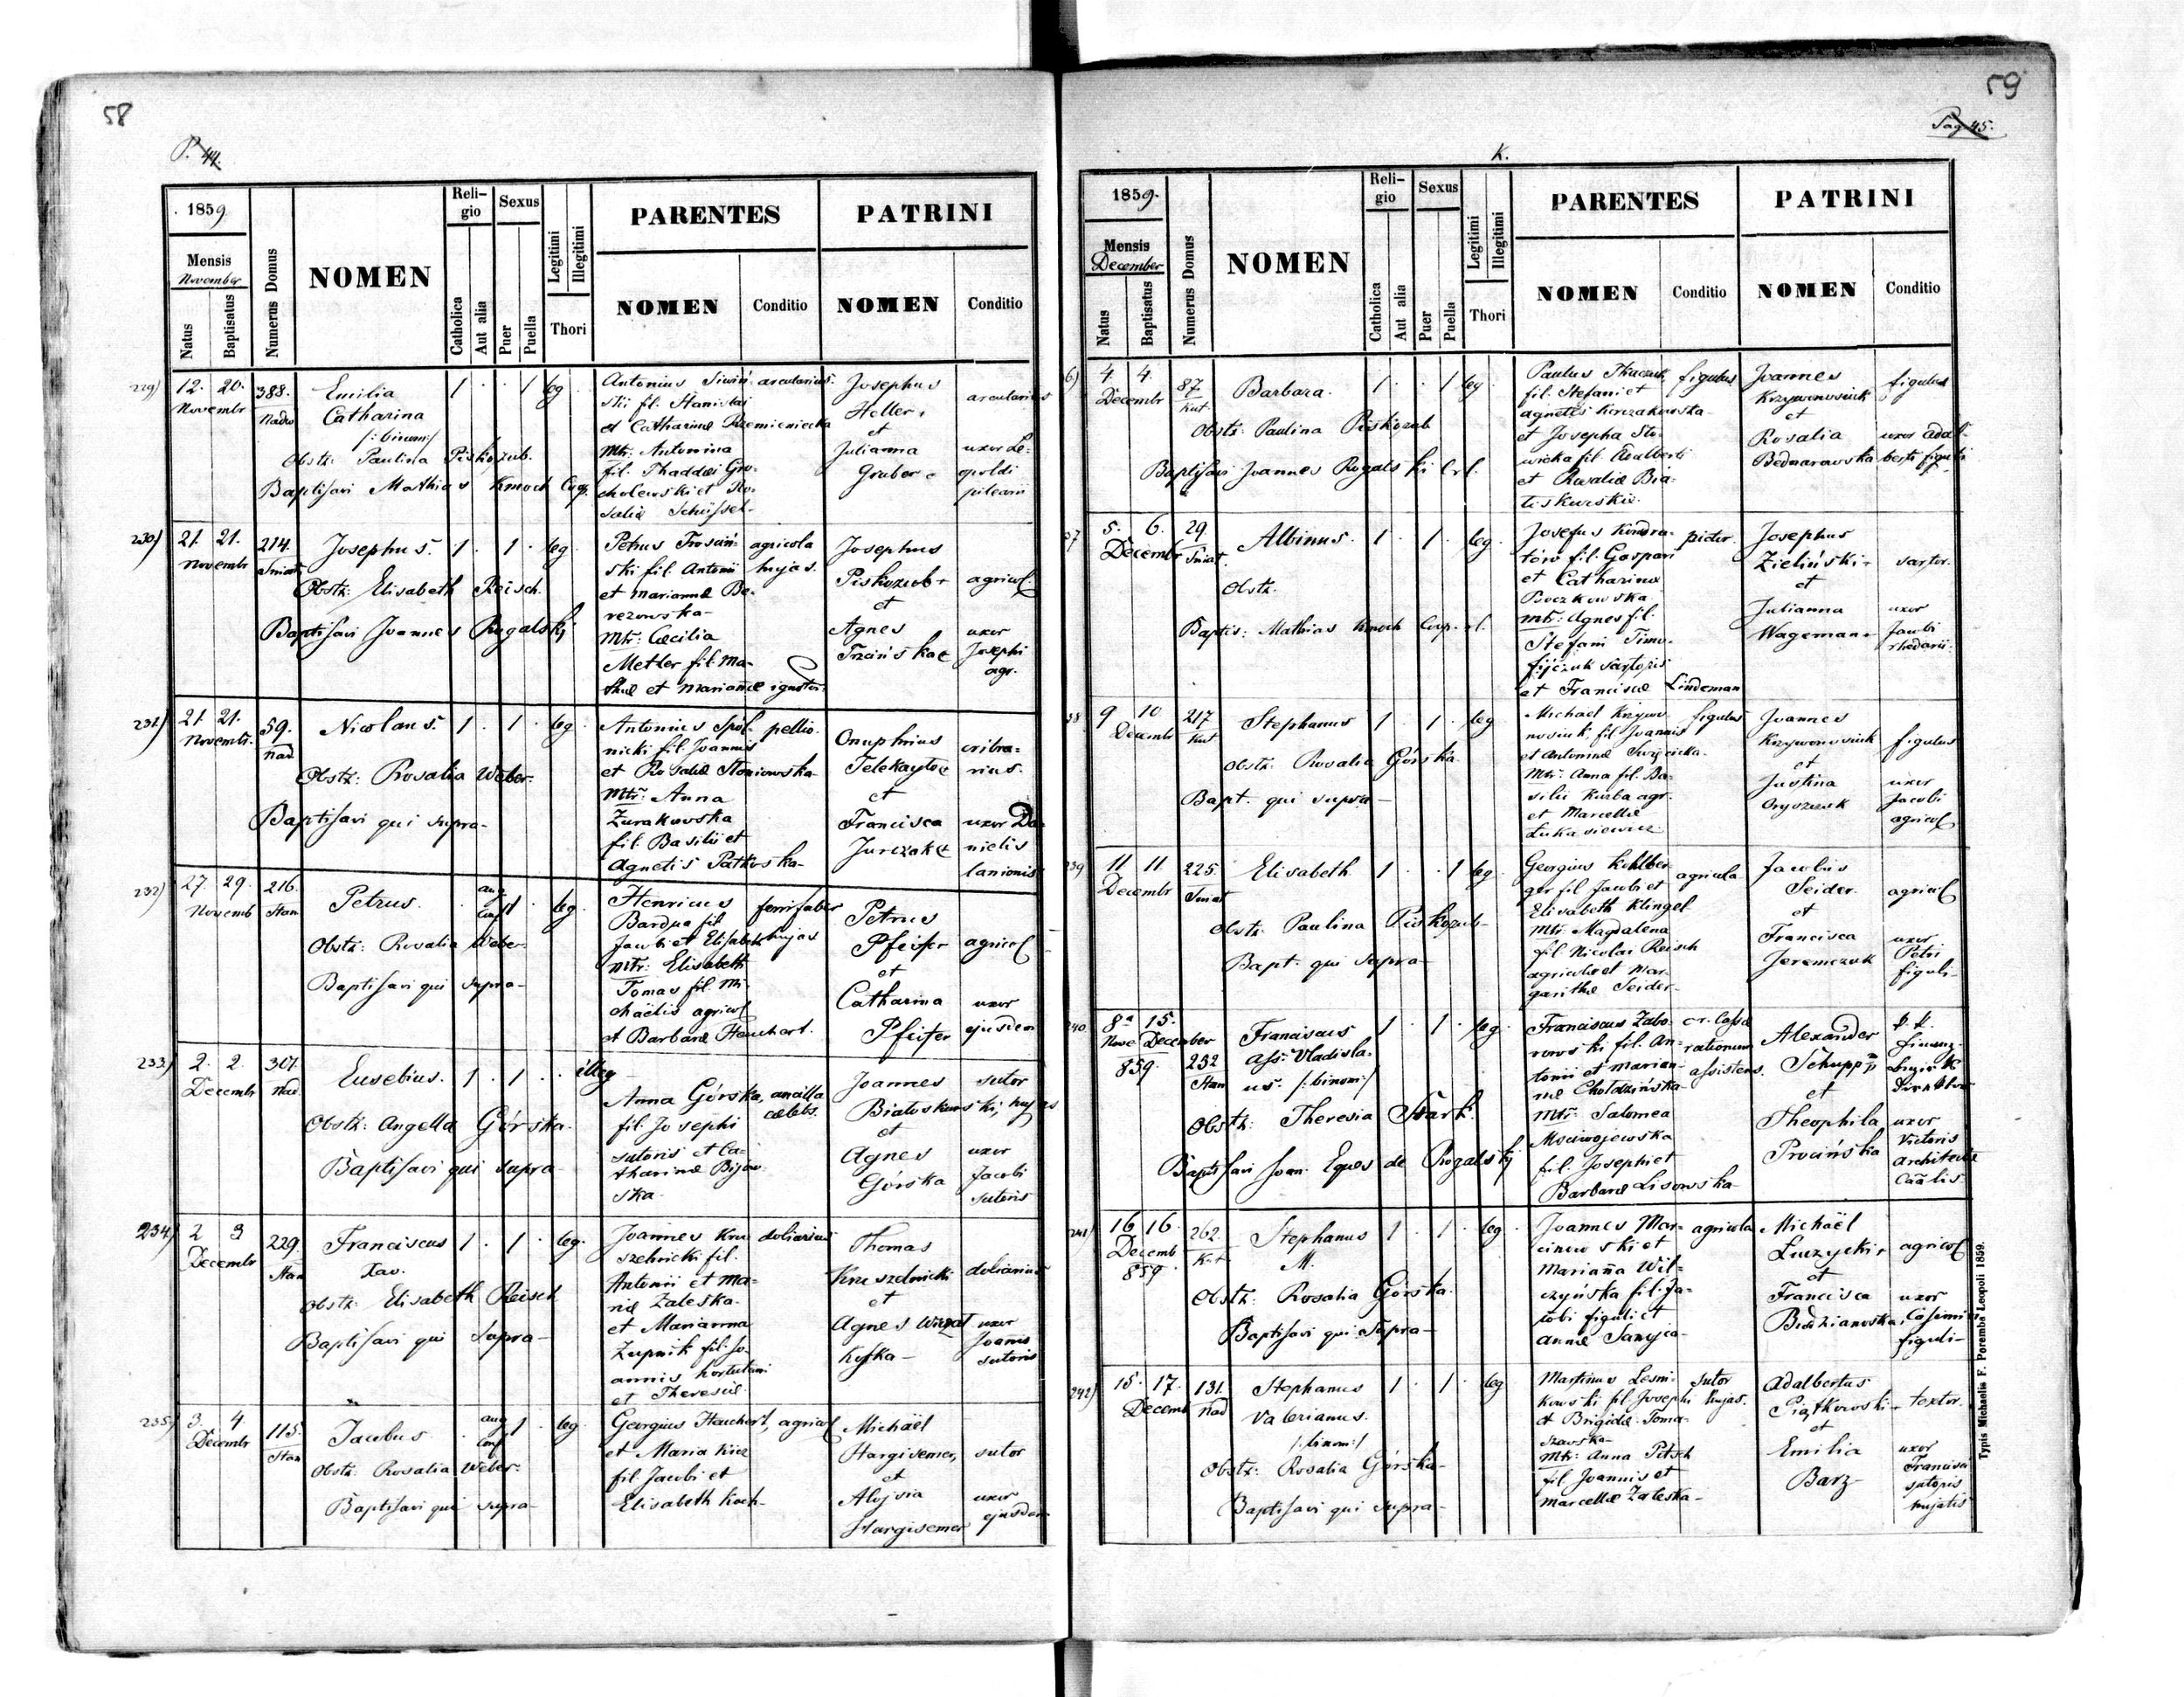 58
P. 44.
1859
Reli-
gio
Sexus
Legitimi
Illegitimi
PARENTES
PATRINI
Mensis
November
Numerus Domus
NOMEN
Natus
Baptisatus
Catholica
Aut alia
Puer
Puella
Thori
NOMEN
Conditio
NOMEN
Conditio
229) 12. 20. 388. Emilia 1 . . 1 leg Antonius Siwiń- arcularius. Josephus
Novembr Nadw Catharina ski fil. Stanislai Heller, arcularius
/: binom:/ et Catharinæ Rzemieniecka et
Obstr: Paulina Piskozub. Mtr: Antonina Julianna uxor Le-
Baptisavi Mathias Kmoch Coop. fil. Thaddæi Gro- Gruber opoldi
cholewski et Ro- pilearii
saliæ Schüssel-
230) 21. 21. 214. Josephus. 1 . 1 . leg Petrus agricola Josephus
Novembr Sniat ski fil. Antonii hujas. Piskozub + agricol
Obstr: Elisabeth Reisch. et Mariannæ Be- et
rezowska- Agnes uxor
Baptisavi Joannes Rogalskj Mtr: Cæcilia Trzcińska Josephi
Metler fil. Ma- agr.
et Mariannæ ignotor:
231) 21. 21. 59. Nicolaus. 1 . 1 . leg Antonius Spól- pellio. Onuphrius cribra-
Novembr. Nad nicki fil. Joannis rius.
Obstr: Rosalia Weber. et Rosaliæ Stoniowska et
Mtr: Anna Francisca uxor Da-
Baptisavi qui supra- Żurakowska Jurczak nielis
fil. Basilii et lanionis
Agnetis Patkoska-
232) 27. 29. 216. Petrus. . aug conf 1 . leg Henricus ferrifaber Petrus
Novemb Stan Bardua fil Pfeifer agricol
Obstr: Rosalia Weber Jacobi et Elisabeth hujas et
Mtr: Elisabeth Catharina uxor
Baptisavi qui supra- Tomas fil. Mi- Pfeifer ejusdem
chaëlis agricol
et Barbaræ Hauchert.
233) 2. 2. 307. Eusebius. 1 . 1 . . illeg Joannes sutor
Decembr Nad Anna Górska, ancilla Białoskurski, hujas
Obstr: Angella Górska. fil. Josephi cælebs. et
sutoris et Ca- Agnes uxor
Baptisavi qui supra tharinæ Bijow- Górska Jacobi
ska- sutoris
234) 2 3 229. Franciscus 1 . 1 . leg. Joannes Kru- doliarius Thomas
Decembr Stan Xav. szelnicki fil. Kruszelnicki doliarius
Obstr: Elisabeth Reisch Antonii et Ma- et
riæ Zaleska. Agnes uxor
Baptisavi qui supra- et Marianna Joannis
Żupnik fil. Jo- sutoris
annis hortulani
et Theresiæ.
235) 3. 4 115. Jacobus . aug conf 1 . leg. Georgius Hauchert, agricol Michaël
Decembr Stan et Maria Kiez Hargisemer, sutor
Obstr: Rosalia Weber. fil Jacobi et et
Baptisavi qui supra- Elisabeth Koch- Aloysia uxor
Hargisemer ejusdem
59
Pag. 45.
K.
1859.
Reli-
gio
Sexus
Legitimi
Illegitimi
PARENTES
PATRINI
Mensis
December
Numerus Domus
NOMEN
Natus
Baptisatus
Catholica
Aut alia
Puer
Puella
Thori
NOMEN
Conditio
NOMEN
Conditio
6) 4. 4. 87 Barbara. 1 . . 1 leg. Paulus Tkaczuk figulus Joannes figulus
Decembr Kut. fil. Stefani et Krzywonosiuk
Obstr: Paulina Piskozub Agnetis Kirczakowska- et
et Josepha Sło- Rosalia uxor Adal-
Baptisavi Joannes Rogalski wicka fil. Adalberti Bednarowska berti figuli
et Rosaliæ Bia-
łoskurskie.
37 5. 6. 29 Albinus. 1 . 1 . leg. Josefus Kondra- pictor. Josephus
Decembr Sniat. tów fil. Gaspari Zieliński + sartor.
Obstr. et Catharinæ et
Boczkowska Julianna uxor
Baptis: Mathias Kmoch Coop. Mtr: Agnes fil. Wageman Jacobi
Stefani Timo- rhedarii.
fijczuk sartoris
et Franciscæ Lindeman
38 9 10 217 Stephanus 1 . 1 . leg Michael Krzywo- figulus Joannes
Decembr Kut nosiuk, fil Joannis Krzywonosiuk figulus
Obstr: Rosalia Górska et Antoninæ et
Mtr: Anna fil. Ba- Justina uxor
Bapt. qui supra- silii Kurba agr. Onyszczuk Jacobi
et Marcellæ agricol
Łukasiewicz
239 11 11 225. Elisabeth 1 . . 1 leg. Georgius Kohlber- agricola Jacobus
Decembr Sniat ger fil Jacobi et Seider. agricol
Elisabeth Klingel et
Obstr: Paulina Piskozub- Mtr: Magdalena Francisca uxor
fil. Nicolai Reisch Jeremczuk Petri
Bapt. qui supra- agricolæ et Mar- figuli-
garithæ Seider-
240 8ª 15. Franciscus 1 . 1 . leg. Franciscus Zabo- cr. Cassæ Alexander k. k.
Nove December 232 Ass. Vladisla- rowski fil. An- rationum Schupp Finanz-
859. Stan us. /: binom:/ tonii et Marian- assistens. et
næ Chołodzińska-
Obstr: Theresia Stärk. Mtr: Salomea Theophila uxor
Mociwojewska Procińska Victoris
Baptisavi Joan. Eques de Rogalskj fil. Josephi et architecti
Barbaræ Lisowska-
241) 16 16. 262. Stephanus 1 . 1 . leg Joannes Mar- agricola Michaël
Decemb Kut M. cinowski et Łuczycki + agricol
859 Marianna Wil- et
Obstr: Rosalia Górska. czyńska fil. Ja- Francisca uxor
cobi figuli et Budzianowska Casimiri
Baptisavi qui supra- Annæ figuli-
242) 15. 17. 131. Stephanus 1 . 1 . leg Martinus Lesni- sutor Adalbertus
Decemb Nad Valerianus. kowski fil Josephi hujas. Piątkowski- textor.
/: binom:/ et Brigidæ Toma- et
szewska- Emilia uxor
Obstr: Rosalia Górska- Mtr: Anna Petsch Barz- Francisci
fil. Joannis et sutoris
Baptisavi qui supra- Marcellæ Zaleska- hujatis
Typis Michaelis F. Poremba Leopoli 1859.